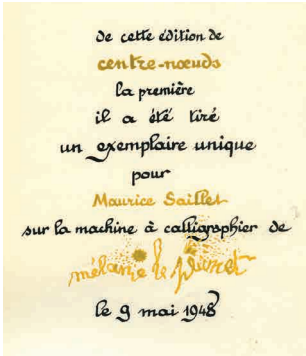 de cette édition de
centre-nœuds
la première
il a été tiré
un exemplaire unique
pour
Maurice Saillet
sur la machine à calligraphier de
mélanie le plumet
le 9 mai 1948